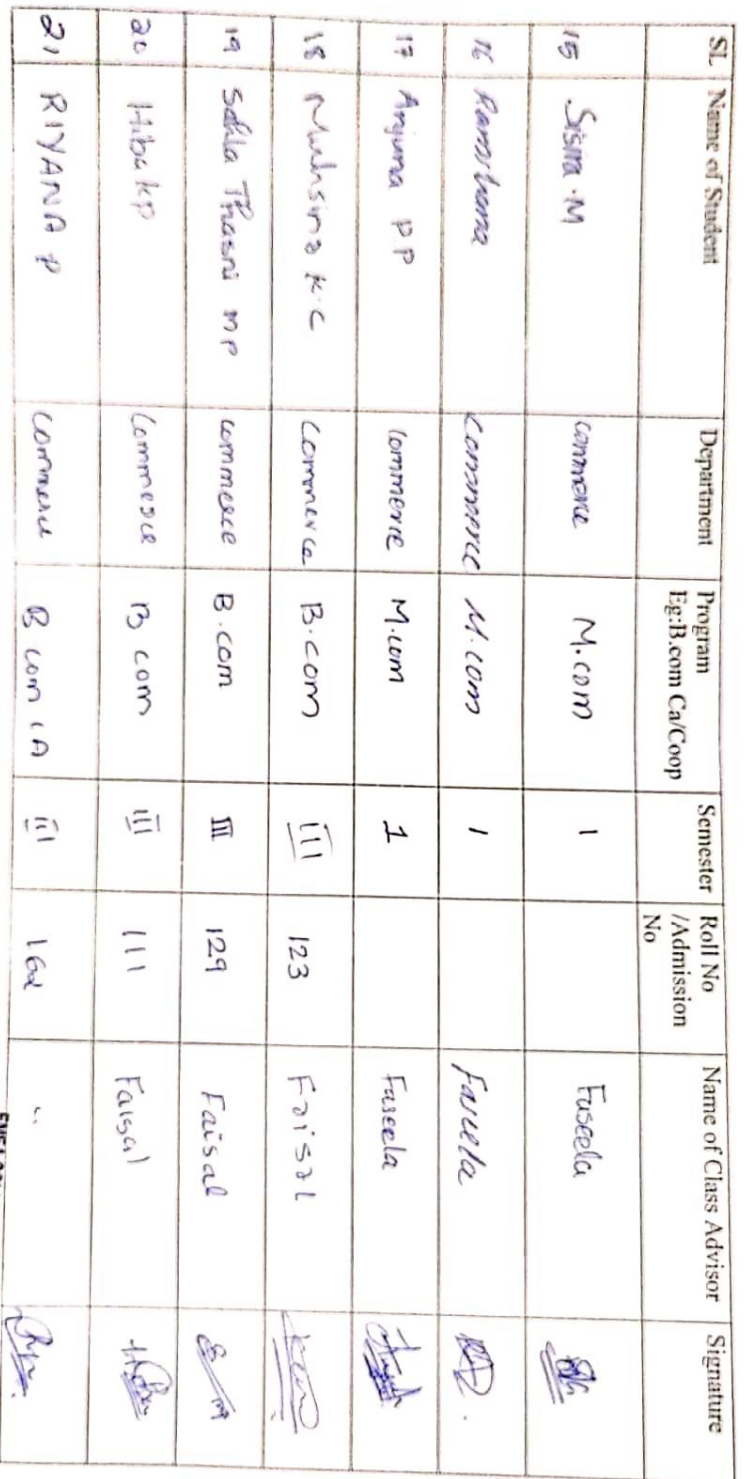 SL Name of Student Department Program Eg:B.com Ca/Coop Semester Roll No /Admission No Name of Class Advisor Signature
15 Sisira .M commerce M.com 1 Fuseela
16 Commerce M.com 1 Fuseela
17 Anjuna P P Commerce M.com 1 Fuseela
18 Muhsina K.C Commerce B.com III 123 Faisal
19 Sahla Thasni MP commerce B.com III 129 Faisal
20 Hiba kp Commerce B com III 111 Faisal
21 RIYANA P commerce B com CA III 162 "